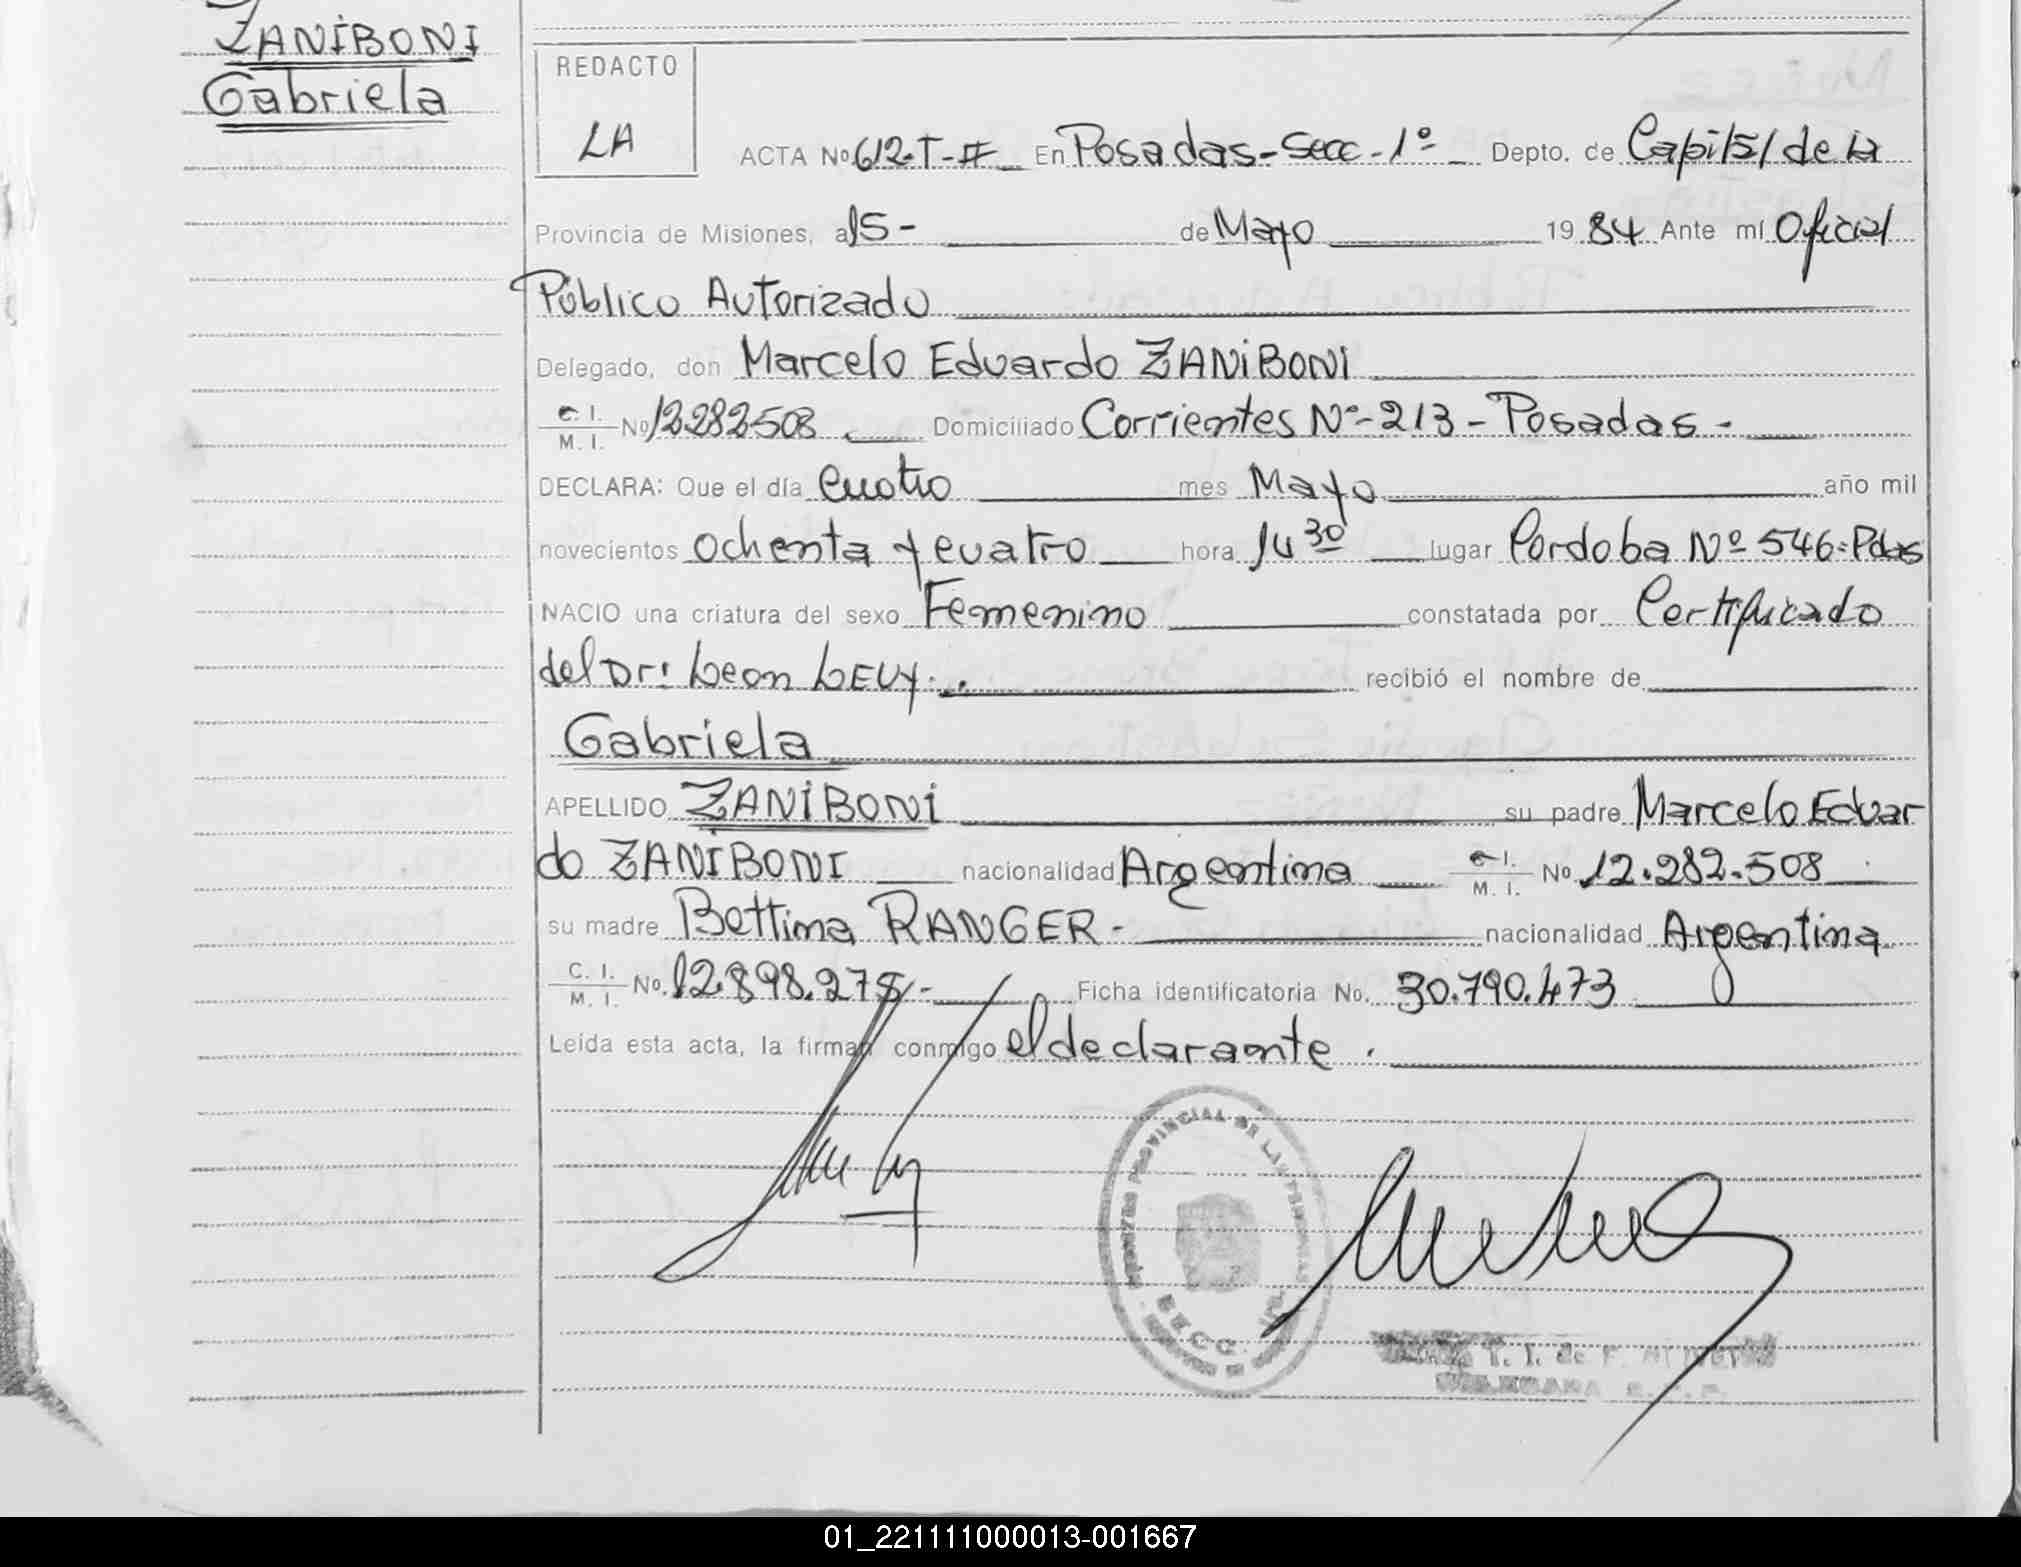 ZANIBONI
Gabriela
REDACTO
LA
ACTA Nº 612-T-II En Posadas-Secc-1º Depto. de Capital de la
Provincia de Misiones, a 15- de Mayo 1984 Ante mí Oficial
Público Autorizado
Delegado, don Marcelo Eduardo ZANIBONI
C. I.
M. I. Nº 12282508 Domiciliado Corrientes Nº-213-Posadas-
DECLARA: Que el día cuatro mes Mayo año mil
novecientos ochenta y cuatro hora 14 30 lugar Cordoba Nº 546-Pdas
NACIO una criatura del sexo Femenino constatada por Certificado
del Dr: Leon LEVY. recibió el nombre de
Gabriela
APELLIDO ZANIBONI su padre Marcelo Eduar
do ZANIBONI nacionalidad Argentina C. I.
M. I. Nº 12.282.508
su madre Bettina RANGER- nacionalidad Argentina
C. I.
M. I. No. 12.898.275- Ficha identificatoria No. 30.790.473
Leída esta acta, la firman conmigo el declarante.
PROVINCIAL DE LAS PERSONAS
01_221111000013-001667